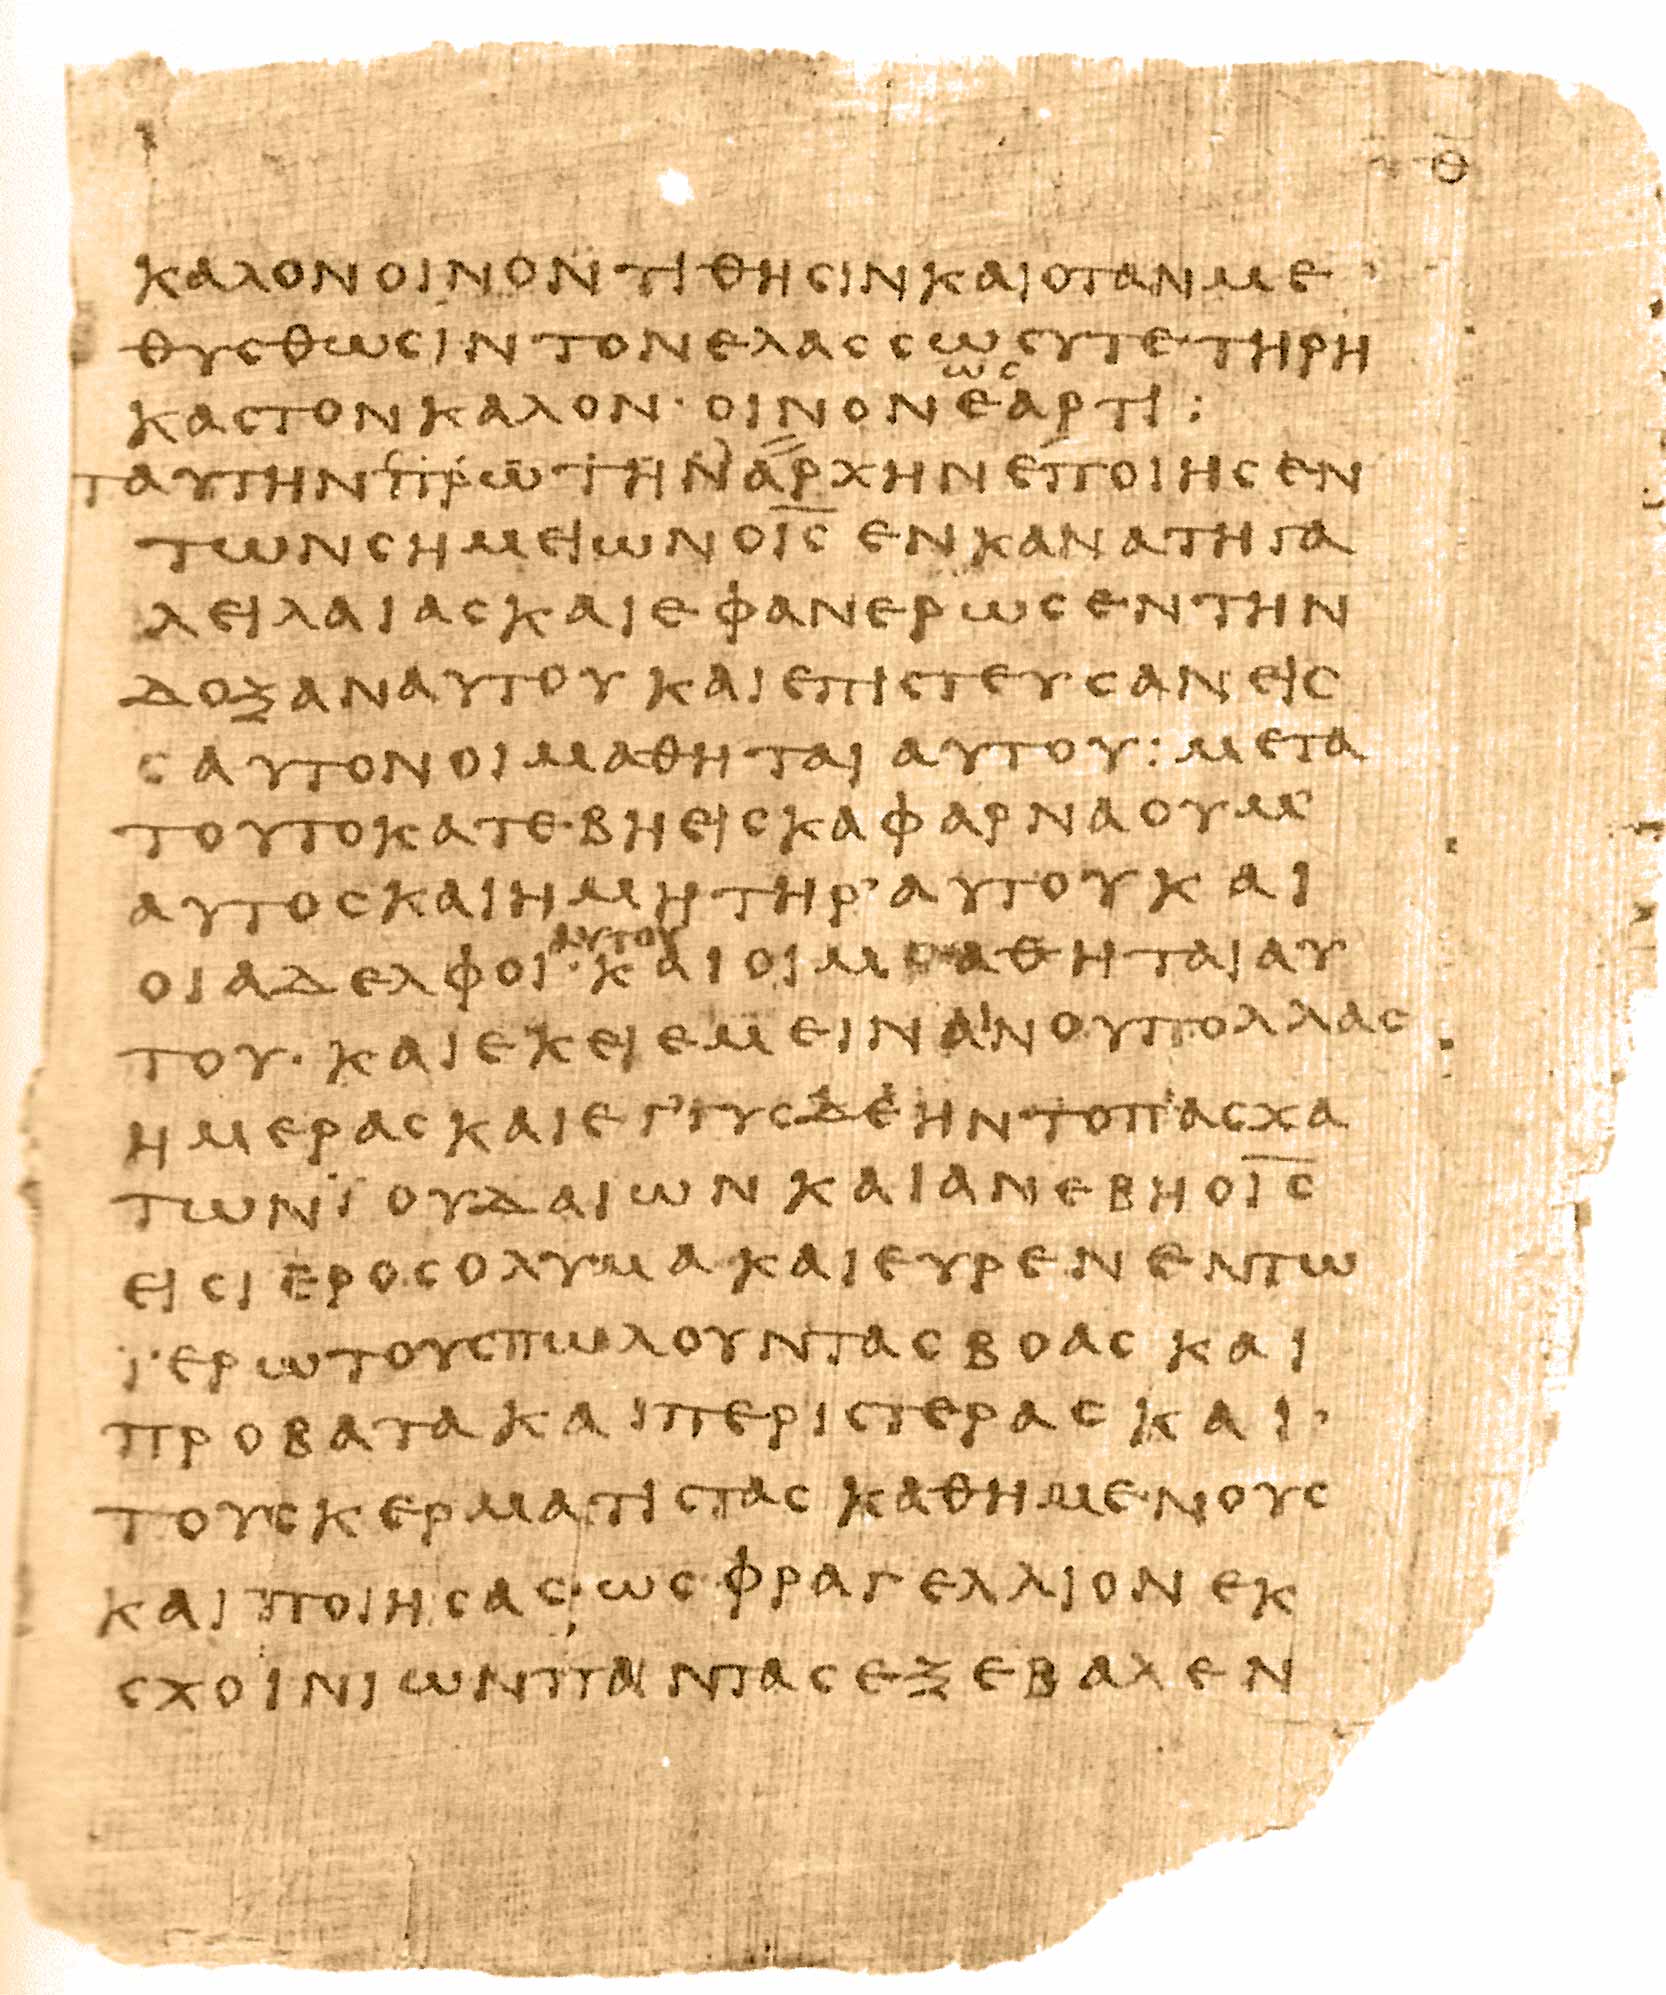 θ
καλονοινοντιθησινκαιοτανμε
θυσθωσιντονελασσωσυτετηρη
ωσ
καστονκαλον·οινονεαρτι:
ταυτηνπρωτηναρχηνεποιησεν
τωνσημειωνοι̅ς̅ ενκανατηγα
λειλαιασκαιεφανερωσεντην
δοξαναυτουκαιεπιστευσανεισ
σαυτονοιμαθηταιαυτου:μετα
τουτοκατεβηεισκαφαρναουμ
αυτοσκαιημητηρ’αυτουκαι
αυτου
οιαδελφοι·καιοιμαθηταιαυ
του·καιεκειεμεινανουπολλασ
ημερασκαιεγγυσδεηντοπασχα
τωνϊουδαιωνκαιανεβηοι̅ς̅
εισιεροσολυμακαιευρενεντω
ϊερωτουσπωλουντασβοασκαι
προβατακαιπεριστερασκαι·
τουσκερματιστασκαθημενουσ
καιποιησασ·ωσφραγελλιονεκ
σχοινιωνπαντασεξεβαλεν